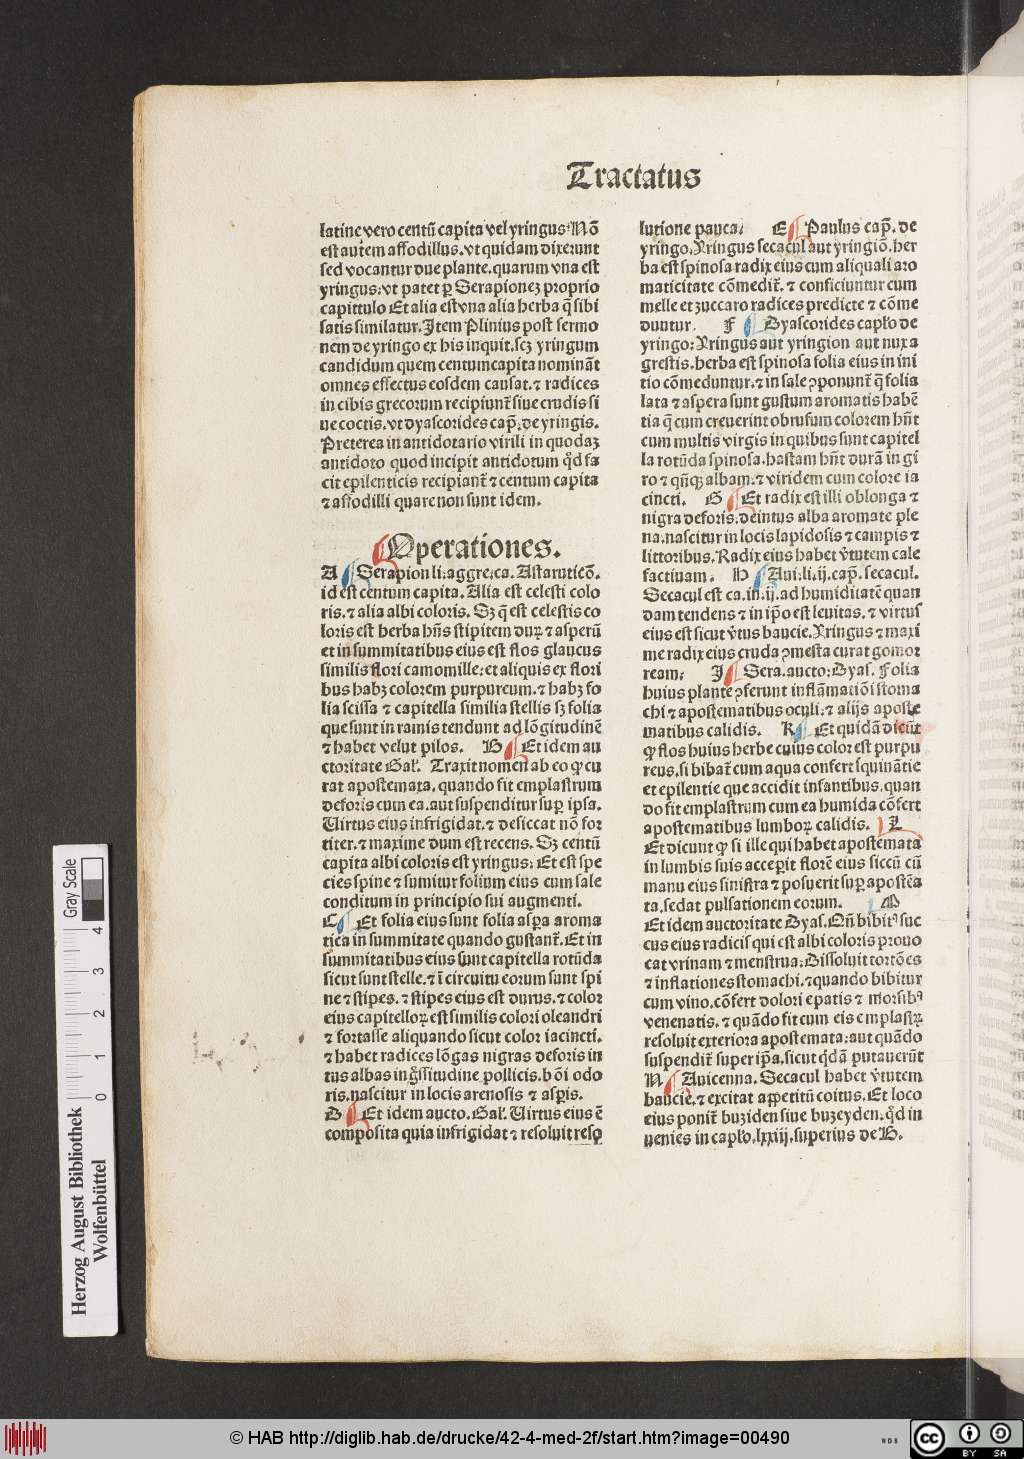 Tractatus
latine vero centū capita vel yringus. Nō
est autem affodillus. vt quidam dixerunt
sed vocantur due plante. quarum vna est
yringus: vt patet ꝑ Serapionez proprio
capittulo Et alia est vna alia herba q̄ sibi
satis similatur. Item Plinius post sermo
nem de yringo ex his inquit. scz yringum
candidum quem centumcapita nomināt
omnes effectus eosdem causat. ⁊ radices
in cibis grecorum recipiunt̄ siue crudis si
ue coctis. vt dyascorides cap̄. de yringis.
Preterea in antidotario virili in quodaz
antidoto quod incipit antidotum qd̄ fa
cit epilenticis recipiant̄ ⁊ centum capita
⁊ affodilli quare non sunt idem.
Operationes.
A Serapion li. aggre. ca. Astaruticō.
id est centum capita. Alia est celesti colo
ris. ⁊ alia albi coloris. Sz q̄ est celestis co
loris est herba hn̄s stipitem duꝝ ⁊ asperū
et in summitatibus eius est flos glaucus
similis flori camomille: et aliquis ex flori
bus habz colorem purpureum. ⁊ habz fo
lia scissa ⁊ capitella similia stellis sz folia
que sunt in ramis tendunt ad lōgitudinē
⁊ habet velut pilos. B Et idem au
ctoritate Gal̄. Traxit nomen ab eo ꝙ cu
rat apostemata. quando fit emplastrum
deforis cum ea. aut suspenditur suꝑ ipsa.
Uirtus eius infrigidat. ⁊ desiccat nō for
titer. ⁊ maxime dum est recens. Sz centū
capita albi coloris est yringus: Et est spe
cies spine ⁊ sumitur folium eius cum sale
conditum in principio sui augmenti.
C Et folia eius sunt folia asꝑa aroma
tica in summitate quando gustant̄. Et in
summitatibus eius sunt capitella rotūda
sicut sunt stelle. ⁊ ī circuitu eorum sunt spi
ne ⁊ stipes. ⁊ stipes eius est durus. ⁊ color
eius capitelloꝝ est similis colori oleandri
⁊ fortasse aliquando sicut color iacincti.
⁊ habet radices lōgas nigras deforis in
tus albas in gͣssitudine pollicis. bōi odo
ris. nascitur in locis arenosis ⁊ asꝑis.
D Et idem aucto. Gal̄. Uirtus eius ē
composita quia infrigidat ⁊ resoluit reso
lutione pauca. E Paulus cap̄. de
yringo. Yringus secacul aut yringiō. her
ba est spinosa radix eius cum aliquali aro
maticitate cōmedit̄. ⁊ conficiuntur cum
melle et zuccaro radices predicte ⁊ cōme
duntur. F Dyascorides capło de
yringo: Yringus aut yringion aut nux a
grestis. herba est spinosa folia eius in ini
tio cōmeduntur. ⁊ in sale ꝓponunt̄ q̄ folia
lata ⁊ aspera sunt gustum aromatis habē
tia q̄ cum creuerint obrusum colorem hn̄t
cum multis virgis in quibus sunt capitel
la rotūda spinosa. hastam hn̄t durā in gi
ro ⁊ qn̄qꝫ albam. ⁊ viridem cum colore ia
cincti. G Et radix est illi oblonga ⁊
nigra deforis. deintus alba aromate ple
na. nascitur in locis lapidosis ⁊ campis ⁊
littoribus. Radix eius habet v̄tutem cale
factiuam. H Aui. li. ij. cap̄. secacul.
Secacul est ca. in. ij. ad humiditatē quan
dam tendens ⁊ in ip̄o est leuitas. ⁊ virtus
eius est sicut v̄tus baucie. Yringus ⁊ maxi
me radix eius cruda ꝯmesta curat gomor
ream. I Sera. aucto: Dyas. Folia
huius plante ꝯferunt inflāmatiōi stoma
chi ⁊ apostematibus oculi. ⁊ alijs aposte
matibus calidis. K Et quidā dicūt
ꝙ flos huius herbe cuius color est purpu
reus. si bibat̄ cum aqua confert squinātie
et epilentie que accidit infantibus. quan
do fit emplastrum cum ea humida cōfert
apostematibus lumboꝝ calidis. L
Et dicunt ꝙ si ille qui habet apostemata
in lumbis suis acceperit florē eius siccū cū
manu eius sinistra ⁊ posuerit suꝑ apostēa
ta. sedat pulsationem eorum. M
Et idem auctoritate Dyas. Qn̄ bibitꝰ suc
cus eius radicis qui est albi coloris prouo
cat vrinam ⁊ menstrua: Dissoluit tortōes
⁊ inflationes stomachi. ⁊ quando bibitur
cum vino. cōfert dolori epatis ⁊ morsibꝰ
venenatis. ⁊ quādo fit cum eis emplastꝝ
resoluit exteriora apostemata: aut quādo
suspendit̄ super ip̄a. sicut qdā putauerūt
N Auicenna. Secacul habet v̄tutem
baucie. ⁊ excitat appetitū coitus. Et loco
eius ponit̄ buziden siue buzeyden. qd̄ in
uenies in capło. lxxiij. superius de B.
Gray Scale
0 1 2 3 4
Herzog August Bibliothek
Wolfenbüttel
© HAB http://diglib.hab.de/drucke/42-4-med-2f/start.htm?image=00490
WDB
cc BY SA